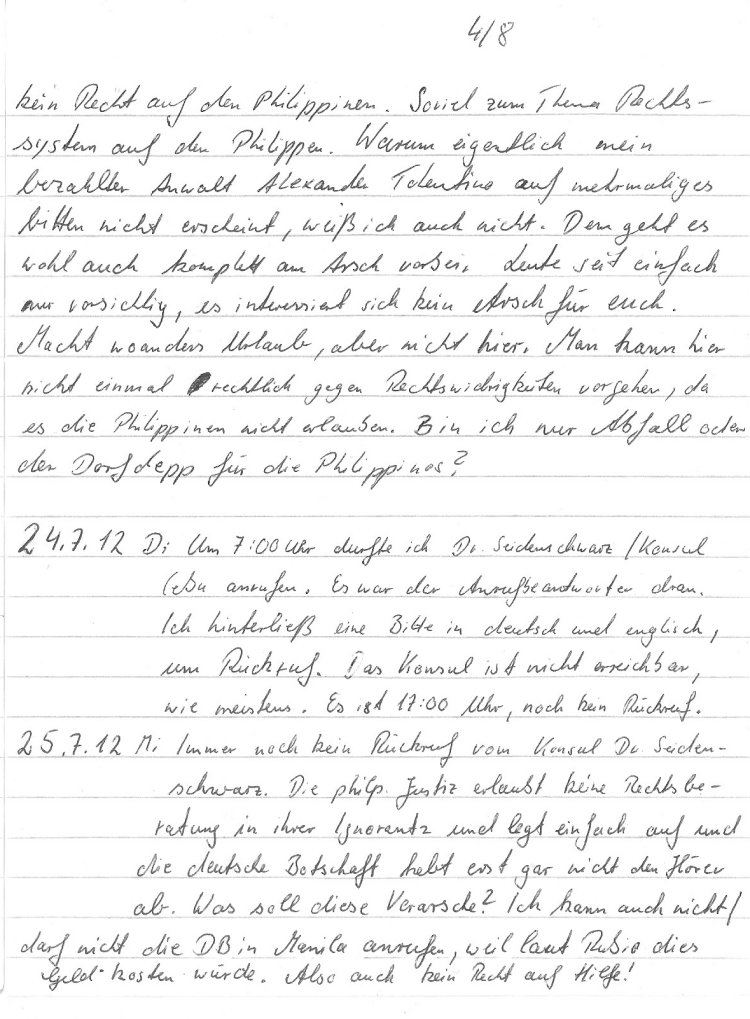 4/8
kein Recht auf den Philippinen. Soviel zum Thema Rechts-
system auf den Philippen. Warum eigentlich mein
bezahlter Anwalt Alexander Tolentino auf mehrmaliges
bitten nicht erscheint, weiß ich auch nicht. Dem geht es
wohl auch komplett am Arsch vorbei. Leute seit einfach
nur vorsichtig, es interessiert sich kein Arsch für euch.
Macht woanders Urlaub, aber nicht hier. Man kann hier
nicht einmal rechtlich gegen Rechtswidrigkeiten vorgehen, da
es die Philippinen nicht erlauben. Bin ich nur Abfall oder
der Dorfdepp für die Philippinos?
24.7.12 Di Um 7:00 Uhr durfte ich Dr. Seidenschwarz / Konsul
Cebu anrufen. Es war der Anrufbeantworter dran.
Ich hinterließ eine Bitte in deutsch und englisch,
um Rückruf. Das Konsul ist nicht erreichbar,
wie meistens. Es ist 17:00 Uhr, noch kein Rückruf.
25.7.12 Mi Immer noch kein Rückruf vom Konsul Dr. Seiden-
schwarz. Die philp. Justiz erlaubt keine Rechtsbe-
ratung in ihrer Ignorantz und legt einfach auf und
die deutsche Botschaft hebt erst gar nicht den Hörer
ab. Was soll diese Verarsche? Ich kann auch nicht/
darf nicht die DB in Manila anrufen, weil laut Rubio dies
Geld kosten würde. Also auch kein Recht auf Hilfe!